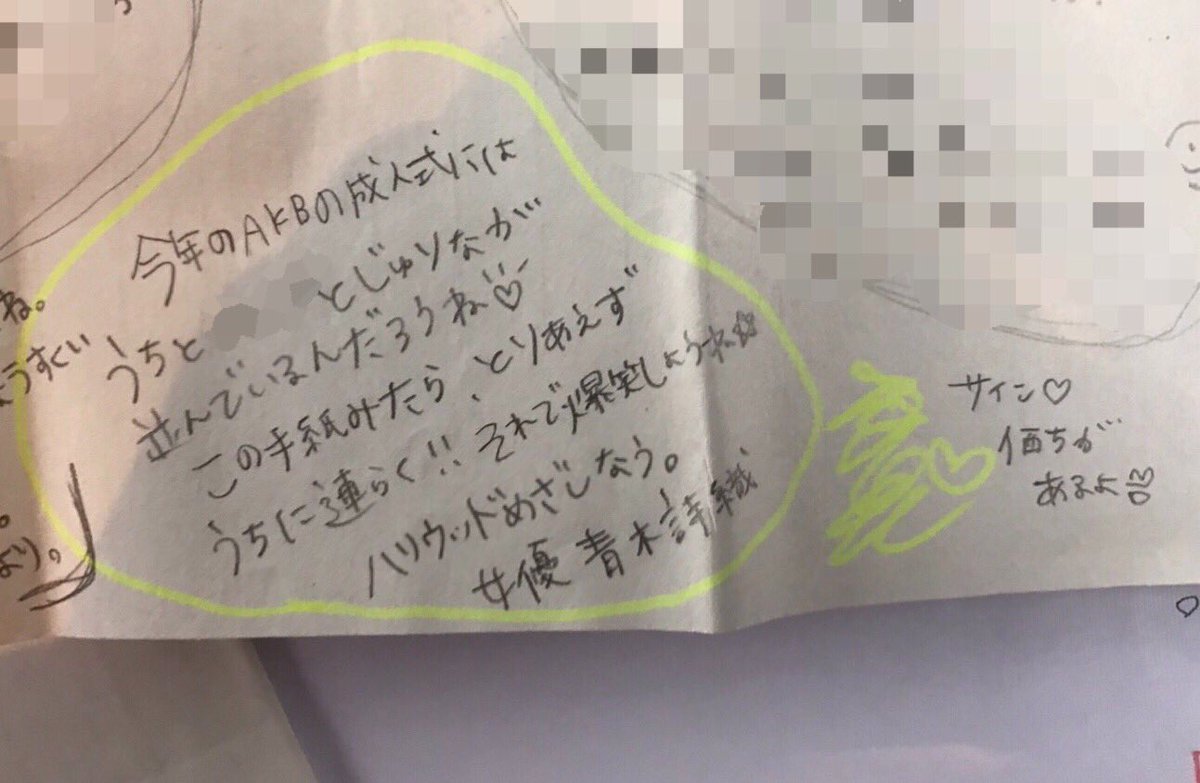 今年のAKBの成人式には
うちと とじゅりなが
並んでいるんだろうね♡
この手紙みたら、とりあえず
うちに連らく!! それで爆笑しようね☆
ハリウッドめざしなう。
女優 青木詩織
サイン♡
価ちが
あるよ
ね。
うすい
より。